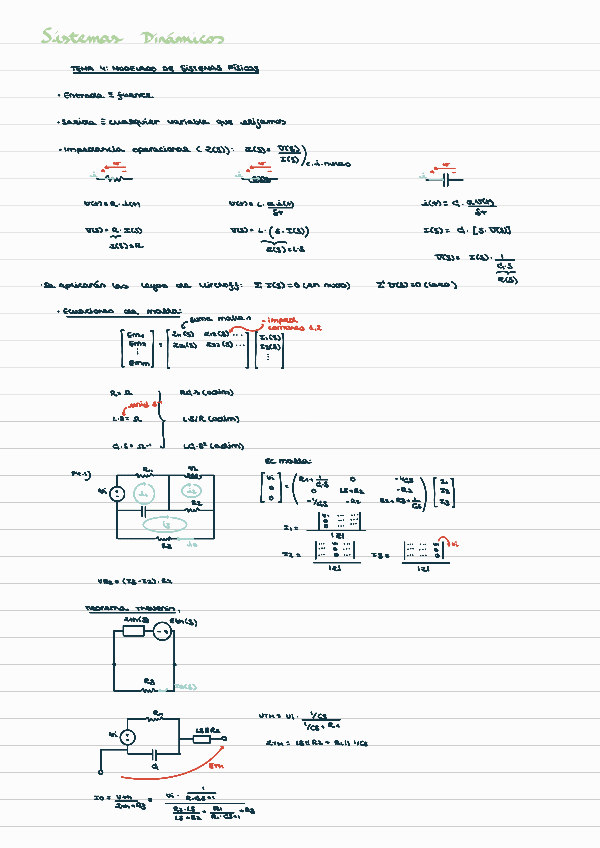 Sistemas Dinámicos
TEMA 4: MODELADO DE SISTEMAS FÍSICOS
· Entrada ≡ fuente
· Salida ≡ cualquier variable que elijamos
· Impedancia operacional (Z(s)): Z(s) = V(s)/I(s) ) c.i. nulas
V(t) = R · i(t)
V(t) = L · d i(t)/dt
i(t) = C · d V(t)/dt
V(s) = R · I(s)
V(s) = L · (s · I(s))
I(s) = C · [s · V(s)]
Z(s) = R
Z(s) = L·s
V(s) = I(s) · 1/C·s
Z(s)
· Se aplicarán las leyes de Kirchoff: Σ I(s) = 0 (en nudo) Σ V(s) = 0 (lazo)
· Ecuaciones de malla:
suma malla 1
- imped. comunes 1,2
[Em1 Em2 ⋮ Emm] = [Z11(s) Z12(s) ... Z21(s) Z22(s) ...] [I1(s) I2(s) ⋮]
R = Ω
unid s⁻¹
L·s = Ω
L·s/R (adim)
C·s = Ω⁻¹
LC·s² (adim)
Ec malla:
R1
Vi
R2
R3
[Vi 0 0] = (R1+1/C·s 0 -1/Cs 0 LS+R2 -R2 -1/Cs -R2 R2+R3+1/Cs) [I1 I2 I3]
I1 =
|Z|
I2 =
I3 =
|Z|
|Z|
VR2 = (I3 - I2) · R2
Teorema Thevenin.
Zth(s)
Eth(s)
R3
R1
Vi
C
LS∥R2
ETH
VTH = Vi · 1/Cs / 1/Cs + R1
ZTH = LS∥R2 + R1∥1/Cs
I0 = VTH / ZTH+R3 = Vi · 1/R1·Cs+1 / R2·LS/LS+R2 + R1/R1·Cs+1 + R3